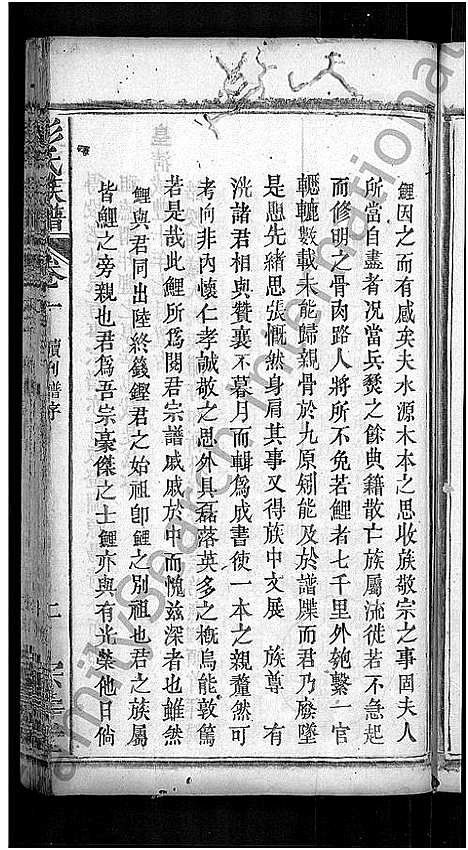 鯉因之而有感矣夫水源木本之思收族敬宗之事固夫人
所當自盡者况當兵燹之餘典籍散亡族屬流徙若不急起
而修明之骨肉路人將所不免若鯉者七千里外匏繫一官
轣轆數載未能歸親骨於九原矧能及於譜牒而君乃廢墜
是愳先緒思張慨然身肩其事又得族中文展 族尊 有
洸諸君相與贊襄不暮月而輯爲成書使一本之親釐然可
考向非內懷仁孝誠敬之思外具磊落英多之概烏能敦篤
若是哉此鯉所爲閱君宗譜戚戚於中而愧兹深者也雖然
鯉與君同出陸終籛鏗君之始祖卽鯉之別祖也君之族屬
皆鯉之旁親也君爲吾宗豪傑之士鯉亦與有光榮他日倘
彭氏族譜 卷一 續刻譜序 二
FamilySearch International